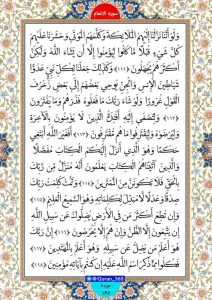 سورة الانعام
وَلَوْ أَنَّنَا نَزَّلْنَا إِلَيْهِمُ الْمَلَائِكَةَ وَكَلَّمَهُمُ الْمَوْتَىٰ وَحَشَرْنَا عَلَيْهِمْ
كُلَّ شَيْءٍ قُبُلًا مَا كَانُوا لِيُؤْمِنُوا إِلَّا أَنْ يَشَاءَ اللَّهُ وَلَٰكِنَّ
أَكْثَرَهُمْ يَجْهَلُونَ ﴿١١١﴾ وَكَذَٰلِكَ جَعَلْنَا لِكُلِّ نَبِيٍّ عَدُوًّا
شَيَاطِينَ الْإِنْسِ وَالْجِنِّ يُوحِي بَعْضُهُمْ إِلَىٰ بَعْضٍ زُخْرُفَ
الْقَوْلِ غُرُورًا وَلَوْ شَاءَ رَبُّكَ مَا فَعَلُوهُ فَذَرْهُمْ وَمَا يَفْتَرُونَ
﴿١١٢﴾ وَلِتَصْغَىٰ إِلَيْهِ أَفْئِدَةُ الَّذِينَ لَا يُؤْمِنُونَ بِالْآخِرَةِ
وَلِيَرْضَوْهُ وَلِيَقْتَرِفُوا مَا هُمْ مُقْتَرِفُونَ ﴿١١٣﴾ أَفَغَيْرَ اللَّهِ أَبْتَغِي
حَكَمًا وَهُوَ الَّذِي أَنْزَلَ إِلَيْكُمُ الْكِتَابَ مُفَصَّلًا
وَالَّذِينَ آتَيْنَاهُمُ الْكِتَابَ يَعْلَمُونَ أَنَّهُ مُنَزَّلٌ مِنْ رَبِّكَ
بِالْحَقِّ فَلَا تَكُونَنَّ مِنَ الْمُمْتَرِينَ ﴿١١٤﴾ وَتَمَّتْ كَلِمَتُ رَبِّكَ
صِدْقًا وَعَدْلًا لَا مُبَدِّلَ لِكَلِمَاتِهِ وَهُوَ السَّمِيعُ الْعَلِيمُ ﴿١١٥﴾
وَإِنْ تُطِعْ أَكْثَرَ مَنْ فِي الْأَرْضِ يُضِلُّوكَ عَنْ سَبِيلِ اللَّهِ
إِنْ يَتَّبِعُونَ إِلَّا الظَّنَّ وَإِنْ هُمْ إِلَّا يَخْرُصُونَ ﴿١١٦﴾ إِنَّ رَبَّكَ
هُوَ أَعْلَمُ مَنْ يَضِلُّ عَنْ سَبِيلِهِ وَهُوَ أَعْلَمُ بِالْمُهْتَدِينَ ﴿١١٧﴾
فَكُلُوا مِمَّا ذُكِرَ اسْمُ اللَّهِ عَلَيْهِ إِنْ كُنْتُمْ بِآيَاتِهِ مُؤْمِنِينَ ﴿١١٨﴾
@Quran_365
صفحه
۱۴۲